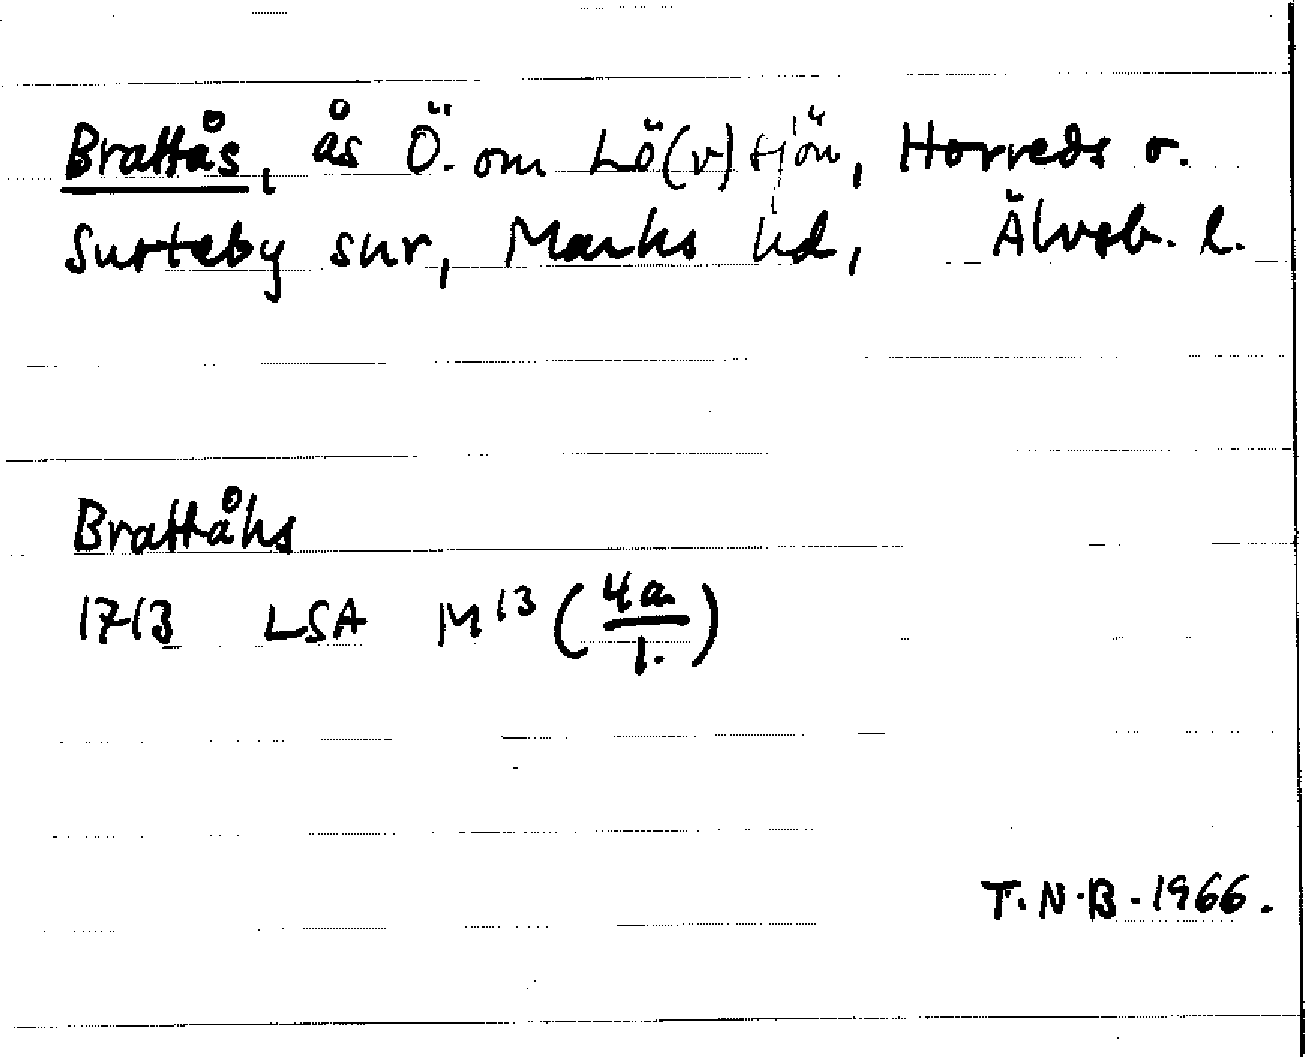 Brattås, ås Ö. om Lö(v)tjön, Horreds o.
Surteby snr, Marks hd, Älvsb. l.
Brattåhs
1713 LSA M 13 (4a/1.)
T.N.B. 1966.